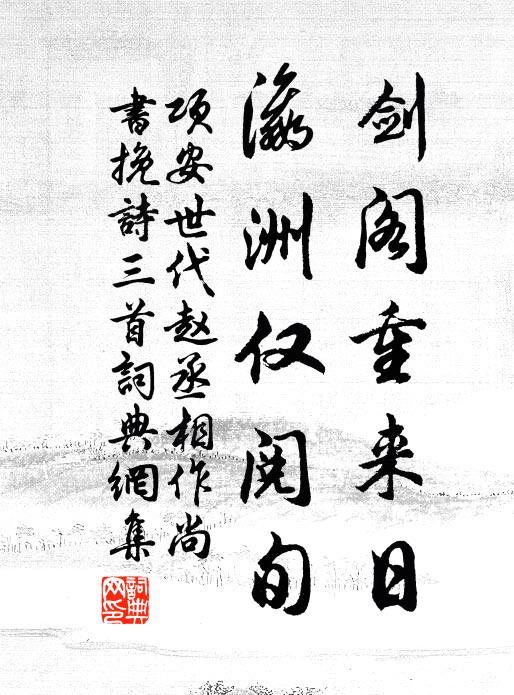 剑阁重来日
瀛洲仅阅旬
项安世代赵丞相作尚
書挽詩三首詞典網集
詞典網印